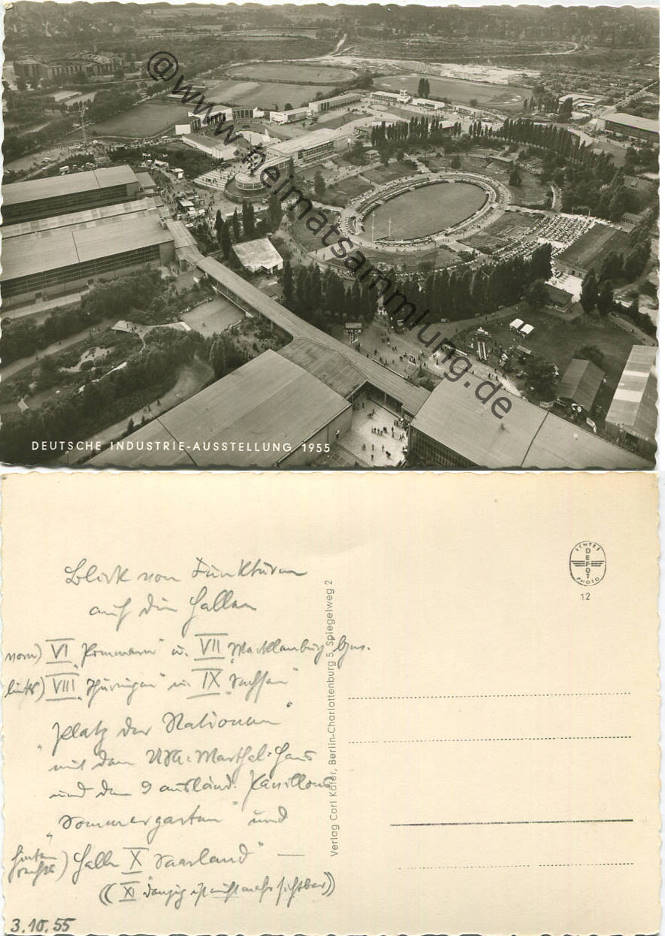 @ www.heimatsammlung.de
DEUTSCHE INDUSTRIE-AUSSTELLUNG 1955
Blick vom Funkturm
auf die Hallen
vorn) VI "Pommern" u. VII "Mecklenburg"
links) VIII "Thüringen" u. IX "Sachsen"
"Platz der Nationen"
mit dem USA-Marshall-Haus
und den 9 ausländ. Pavillons
"Sommergarten" und
hinten rechts) Halle X "Saarland" —
((XI "Danzig" ist nicht mehr sichtbar))
3.10.55
Verlag Carl Käfer, Berlin-Charlottenburg 5, Spiegelweg 2
ECHTES
DEFOT
PHOTO
12